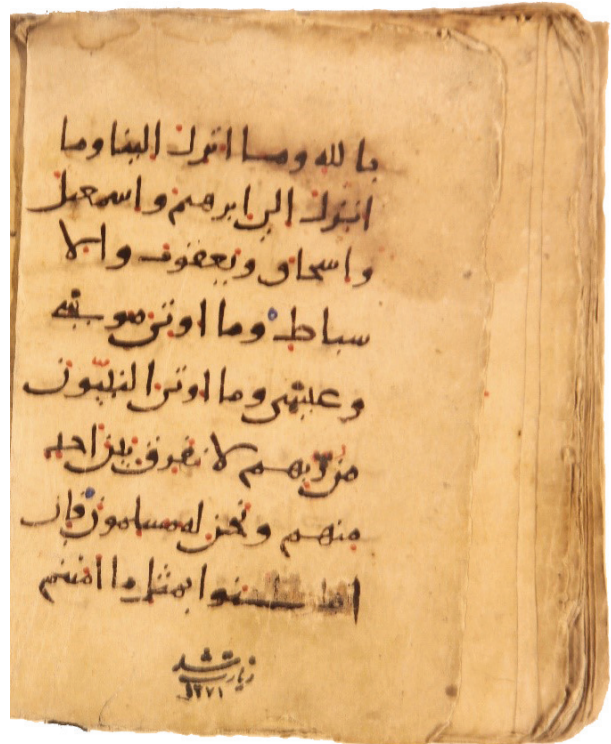 بالله وما انزل الينا وما
انزل الى ابرهيم واسمعيل
واسحاق ويعقوب والا
سباط وما اوتى موسى
وعيسى وما اوتى النبيّون
من ربّهم لا نفرق بين احد
منهم ونحن له مسلمون فان
امنوا بمثل ما امنتم
زيارت شد
١٢٧١